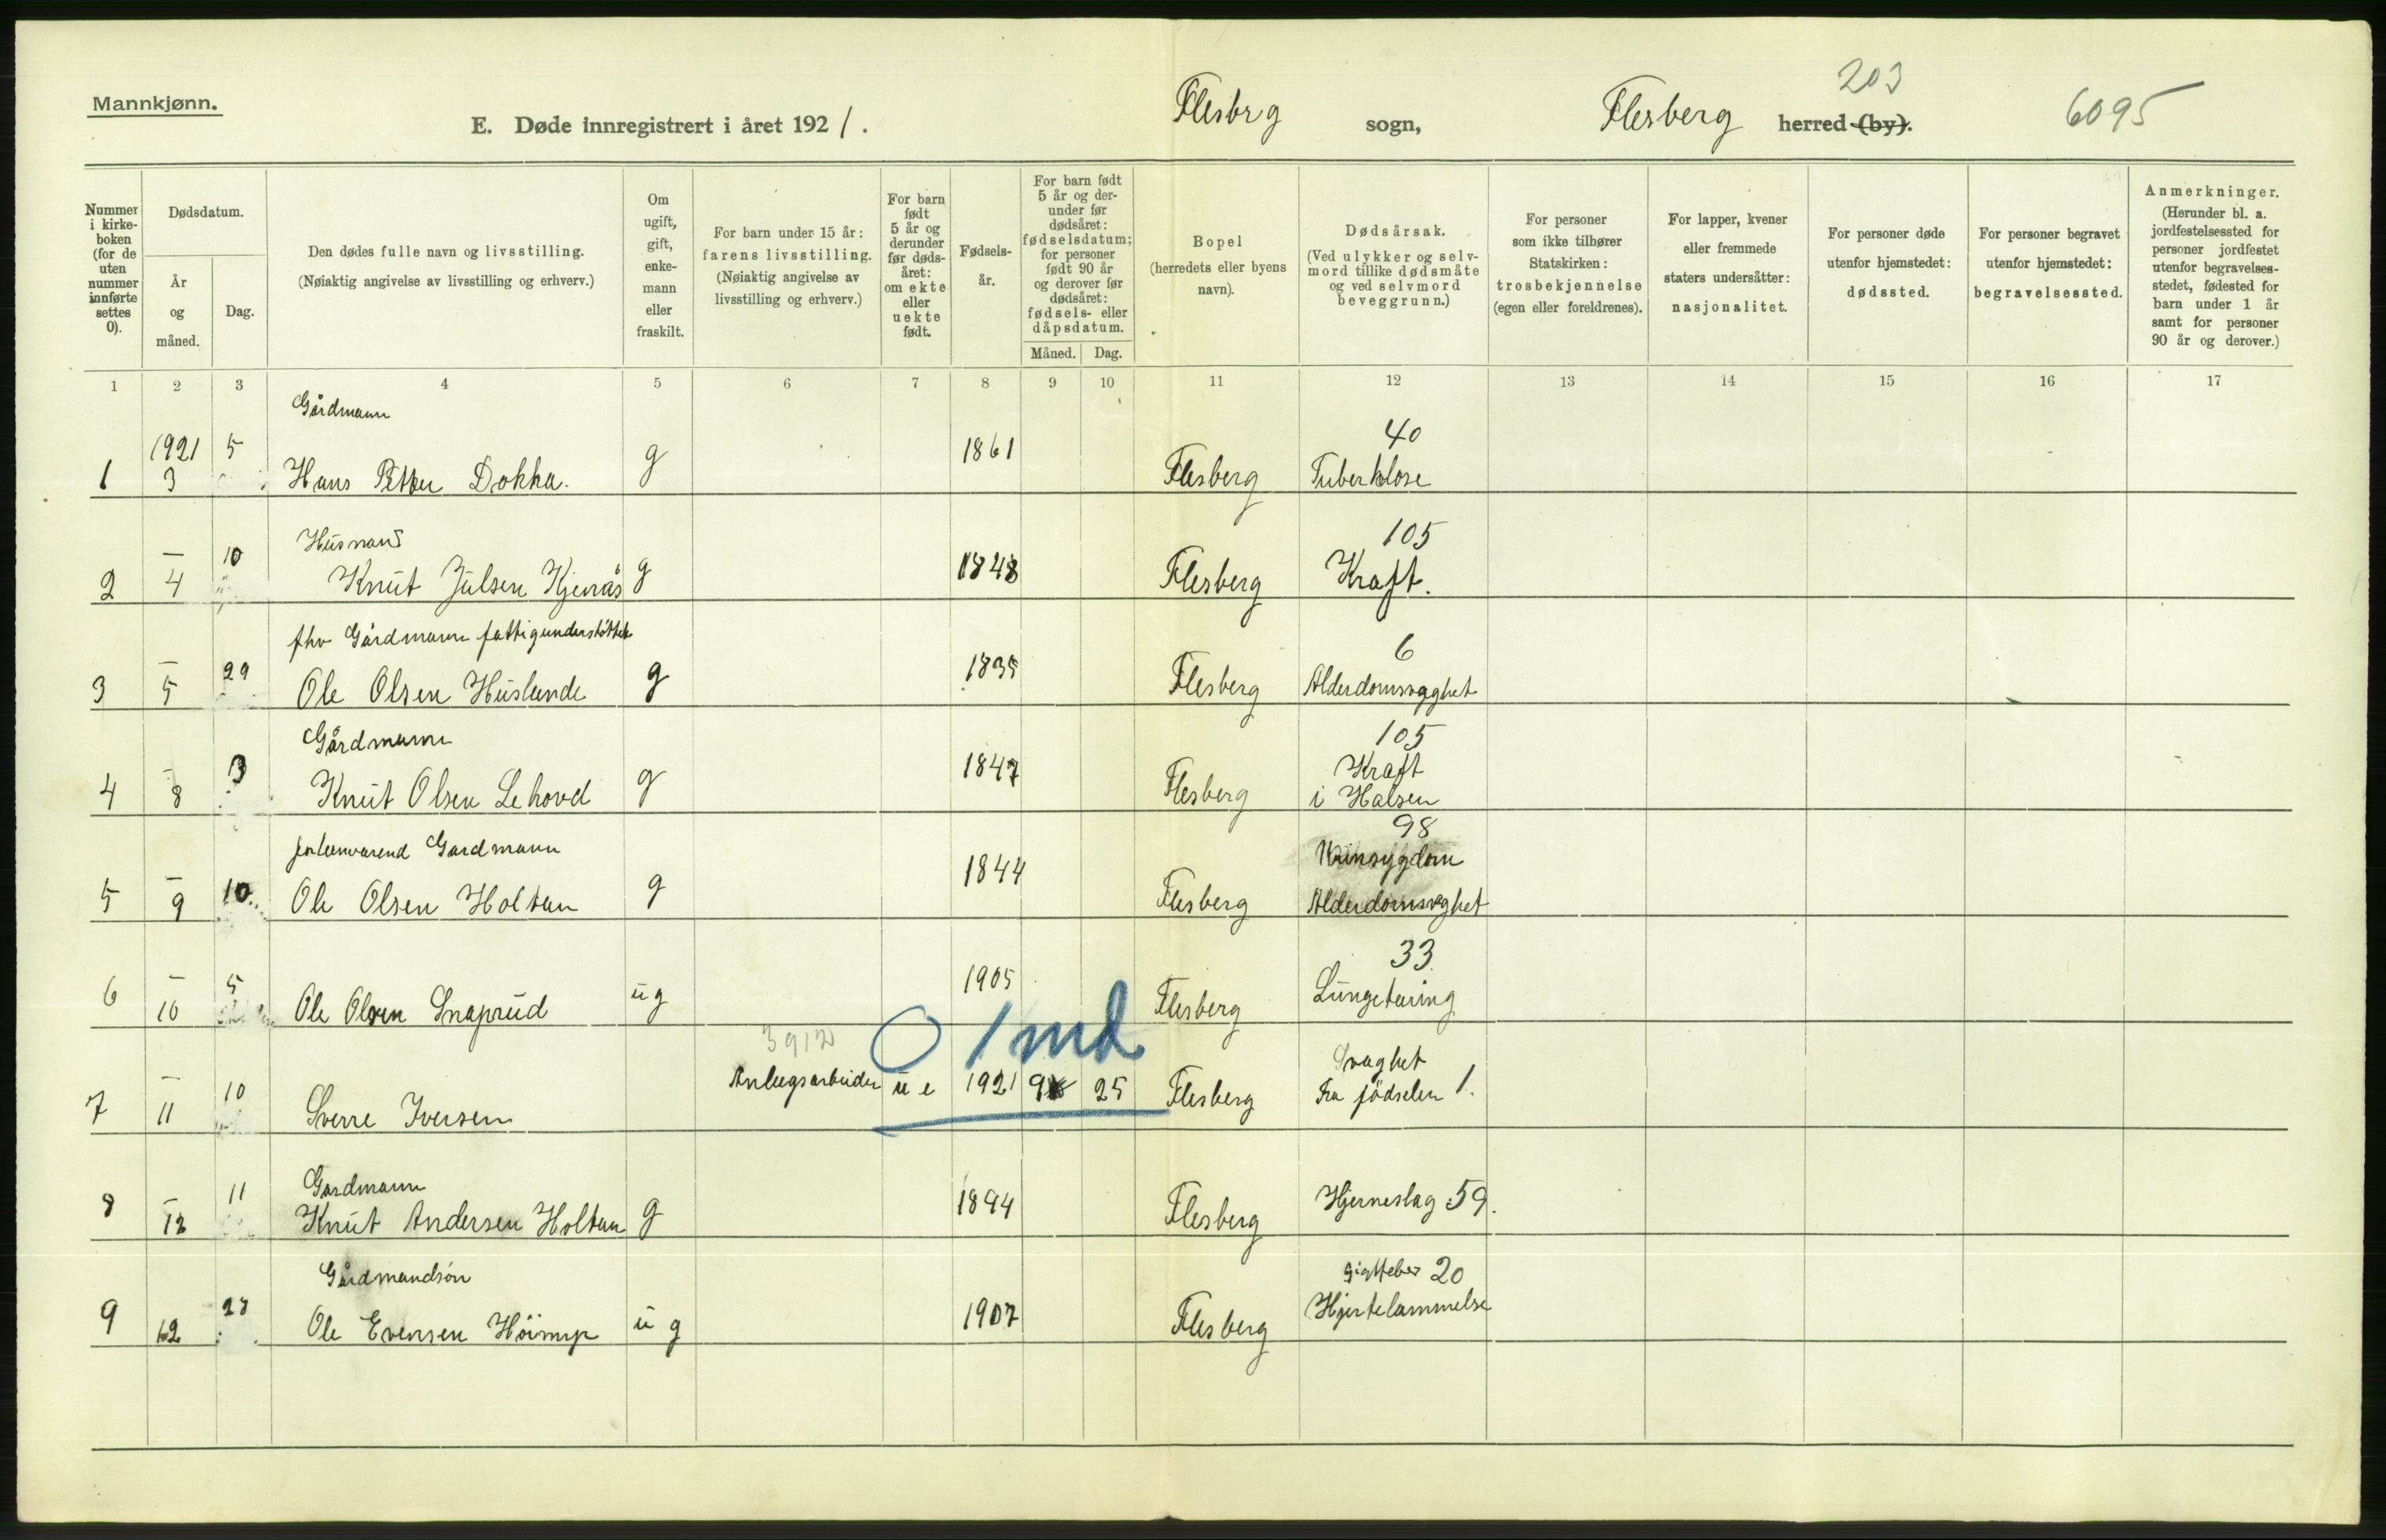 Mannkjønn.
E. Døde innregistrert i året 1921.
Flesbrg sogn,
Flesberg herred (by).
203
6095
Nummer i kirkeboken (for de uten nummer innførte settes 0).
Dødsdatum.
År og måned.
Dag.
Den dødes fulle navn og livsstilling.
(Nøiaktig angivelse av livsstilling og erhverv.)
Om ugift, gift, enkemann eller fraskilt.
For barn under 15 år: farens livsstilling.
(Nøiaktig angivelse av livsstilling og erhverv.)
For barn født 5 år og derunder før dødsåret: om ekte eller uekte født.
Fødselsår.
For barn født 5 år og derunder før dødsåret: fødselsdatum; for personer født 90 år og derover før dødsåret: fødsels- eller dåpsdatum.
Måned. Dag.
Bopel (herredets eller byens navn).
Dødsårsak.
(Ved ulykker og selvmord tillike dødsmåte og ved selvmord beveggrunn.)
For personer som ikke tilhører Statskirken: trosbekjennelse (egen eller foreldrenes).
For lapper, kvener eller fremmede staters undersåtter: nasjonalitet.
For personer døde utenfor hjemstedet: dødssted.
For personer begravet utenfor hjemstedet: begravelsessted.
Anmerkninger.
(Herunder bl. a. jordfestelsessted for personer jordfestet utenfor begravelsesstedet, fødested for barn under 1 år samt for personer 90 år og derover.)
1 2 3 4 5 6 7 8 9 10 11 12 13 14 15 16 17
Gårdmann
40
1 1921 3 5 Hans Petter Dokka. g 1861 Flesberg Tuberklose
Husmand
105
2 — 4 10 Knut Julsen Kjenås g 1848 Flesberg Kraft.
fhv Gårdmann fattigunderstøttet
6
3 — 5 29 Ole Olsen Huslende g 1835 Flesberg Alderdomsvaghet
Gårdmann
105
4 — 8 3 Knut Olsen Lehovd g 1847 Flesberg Kraft
i Halsen
98
Gardmann
Urinsygdom
5 — 9 10 Ole Olsen Holtan g 1844 Flesberg Alderdomsvaghet
33
6 — 10 5 Ole Olsen Snaprud ug 1905 Flesberg Lungetæring
0 1 md
Svaghet
7 — 11 10 Sverre Iversen Anlegsarbeider u e 1921 9 25 Flesberg Fra födselen 1.
Gardmann
8 — 12 11 Knut Andersen Holtan g 1894 Flesberg Hjerneslag 59.
Gårdmandsön
Gigtfeber 20
9 12 Ole Evensen u g 1907 Flesberg Hjertelammelse